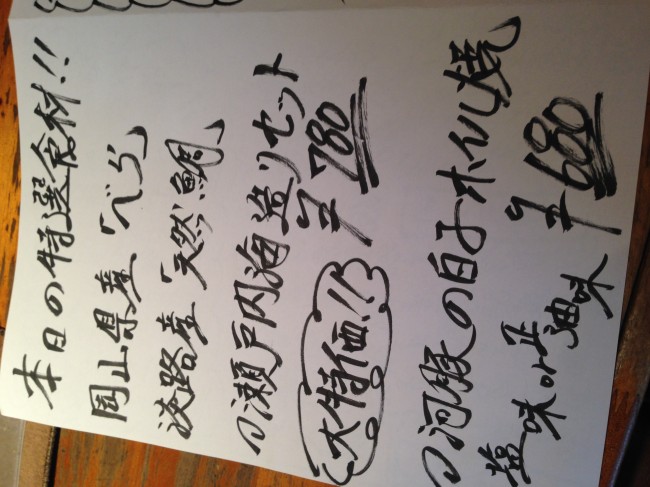 本日の特選食材!!
岡山県産「べら」
淡路産「天然鯛」
の瀬戸内海造りセット
大特価!!
¥780
の河豚の白子ホイル焼
塩味or正油味
¥680